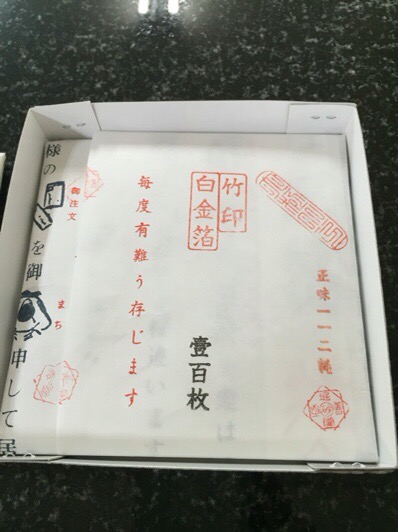 竹印
白金箔
正味一一二耗
毎度有難う存じます
壹百枚
御注文
まち
様の
を御
申して
居